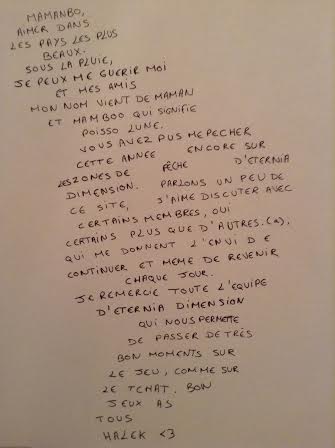 MAMANBO,
AIMER DANS
LES PAYS LES PLUS
BEAUX.
SOUS LA PLUIE,
JE PEUX ME GUERIR MOI
ET MES AMIS
MON NOM VIENT DE MAMAN
ET MAMBOO QUI SIGNIFIE
POISSO LUNE.
VOUS AVEZ PUS ME PECHER
CETTE ANNEE ENCORE SUR
LES ZONES DE PÊCHE D'ETERNIA
DIMENSION. PARLONS UN PEU DE
CE SITE, J'AIME DISCUTER AVEC
CERTAINS MEMBRES, OUI
CERTAINS PLUS QUE D'AUTRES. (^),
QUI ME DONNENT L'ENVI DE
CONTINUER ET MEME DE REVENIR
CHAQUE JOUR.
JE REMERCIE TOUTE L'EQUIPE
D'ETERNIA DIMENSION
QUI NOUS PERMETTE
DE PASSER DE TRÈS
BON MOMENTS SUR
LE JEU, COMME SUR
LE TCHAT. BON
JEUX AS
TOUS
HALEK <3